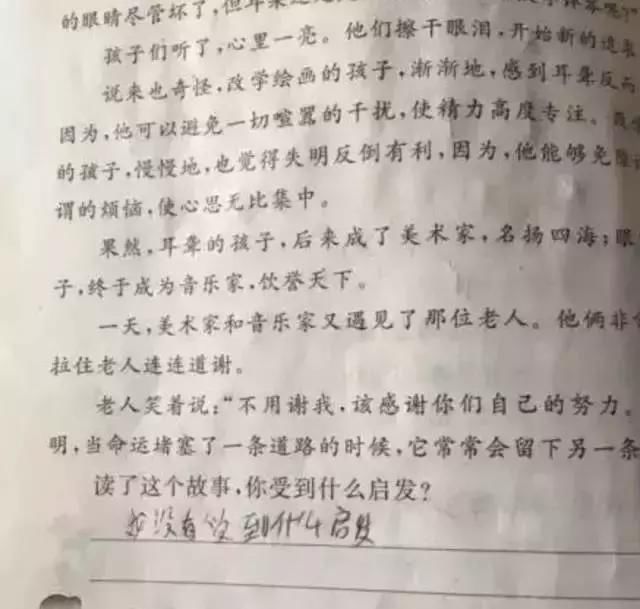 的眼睛尽管坏了，但耳朵
孩子们听了，心里一亮。他们擦干眼泪，开始新的追
说来也奇怪，改学绘画的孩子，渐渐地，感到耳聋反而
因为，他可以避免一切喧嚣的干扰，使精力高度专注。
的孩子，慢慢地，也觉得失明反倒有利，因为，他能够免
谓的烦恼，使心思无比集中。
果然，耳聋的孩子，后来成了美术家，名扬四海；眼
子，终于成为音乐家，饮誉天下。
一天，美术家和音乐家又遇见了那位老人。他俩非
拉住老人连连道谢。
老人笑着说：“不用谢我，该感谢你们自己的努力。
明，当命运堵塞了一条道路的时候，它常常会留下另一条
读了这个故事，你受到什么启发？
我没有收到什么启发